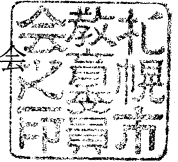 札幌市
教育委員
会之印
会